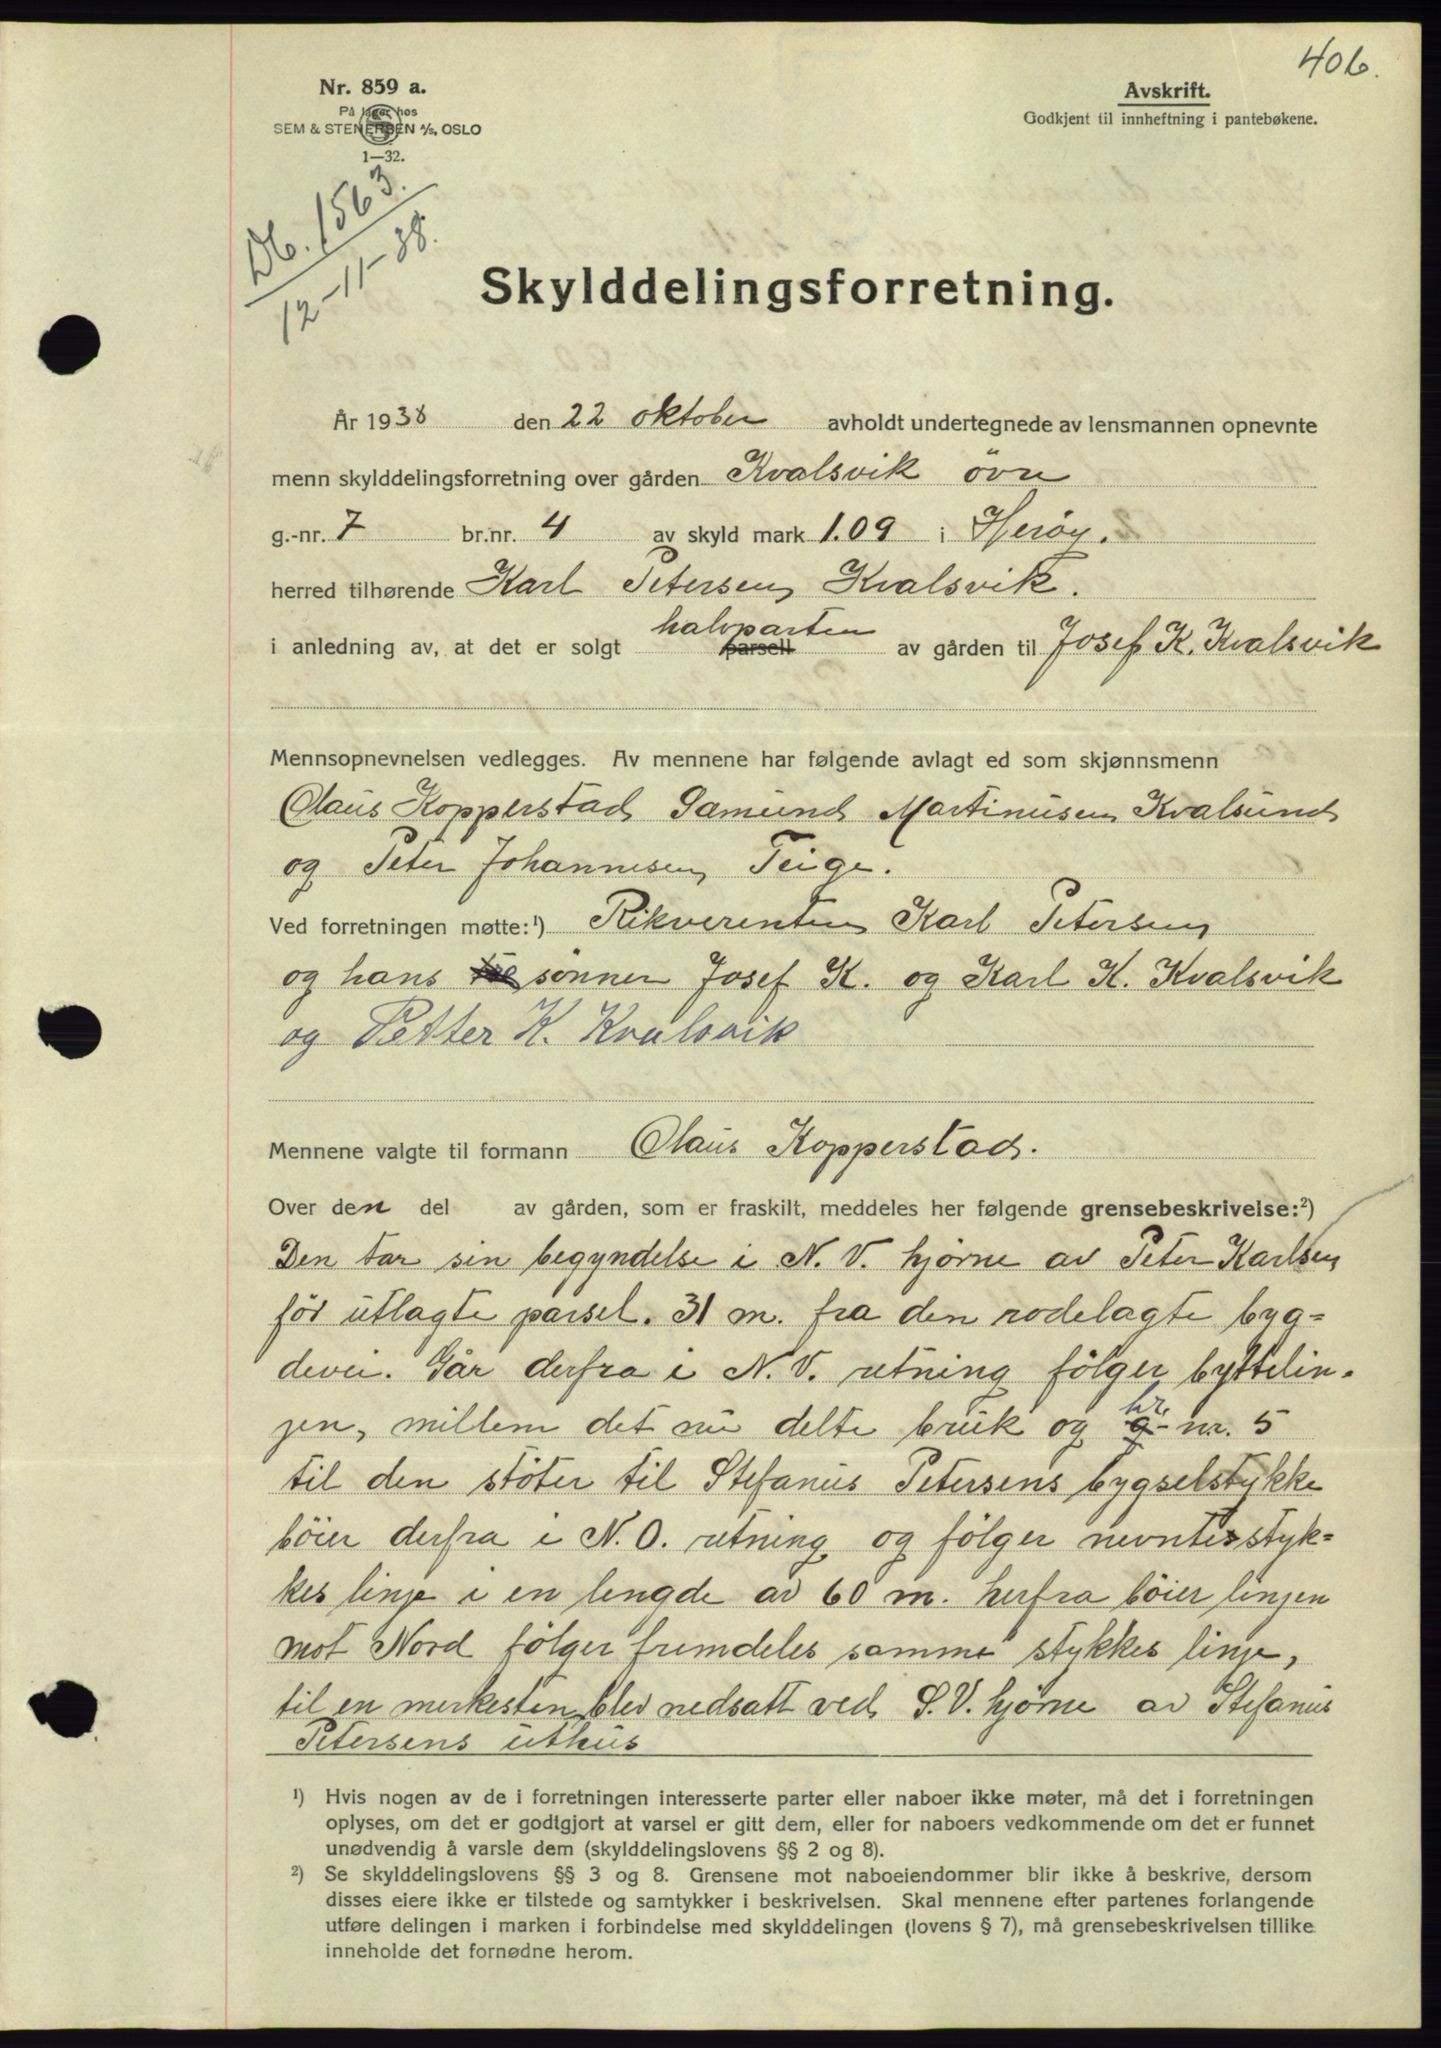 406.
Nr. 859 a.
På lager hos
SEM & STENERSEN A/S, OSLO
1—32.
Avskrift.
Godkjent til innheftning i pantebøkene.
Db. 1563.
12-11-38.
Skylddelingsforretning.
År 1938 den 22 oktober avholdt undertegnede av lensmannen opnevnte
menn skylddelingsforretning over gården Kvalsvik övre
g.-nr. 7 br.nr. 4 av skyld mark 1.09 i Herøy.
herred tilhørende Karl Petersen Kvalsvik.
i anledning av, at det er solgt halvparten parsell av gården til Josef K. Kvalsvik
Mennsopnevnelsen vedlegges. Av mennene har følgende avlagt ed som skjønnsmenn
Claus Kopperstad Samund Martinusen Kvalsund
og Peter Johannesen Teige.
Ved forretningen møtte:¹) Rikverenten Karl Petersen
og hans sønner Josef K. og Karl K. Kvalsvik
og Petter K. Kvalsvik
Mennene valgte til formann Claus Kopperstad.
Over den del av gården, som er fraskilt, meddeles her følgende grensebeskrivelse:²)
Den tar sin begyndelse i N. V. hjørne av Peter Karlsen
før utlagte parsel. 31 m. fra den rodelagte byg=
devei. Går derfra i N. V. retning følger byttelin-
jen, millem det nu delte bruk og g br. nr. 5
til den støter til Stefanus Petersens bygselstykke
bøier derfra i N. O. retning og følger nevnte styk=
kes linje i en lengde av 60 m. herfra bøier linjen
mot Nord følger fremdeles samme stykkes linje,
til en merkesten blev nedsatt ved S. V. hjørne av Stefanus
Petersens uthus
¹) Hvis nogen av de i forretningen interesserte parter eller naboer ikke møter, må det i forretningen
oplyses, om det er godtgjort at varsel er gitt dem, eller for naboers vedkommende om det er funnet
unødvendig å varsle dem (skylddelingslovens §§ 2 og 8).
²) Se skylddelingslovens §§ 3 og 8. Grensene mot naboeiendommer blir ikke å beskrive, dersom
disses eiere ikke er tilstede og samtykker i beskrivelsen. Skal mennene efter partenes forlangende
utføre delingen i marken i forbindelse med skylddelingen (lovens § 7), må grensebeskrivelsen tillike
inneholde det fornødne herom.